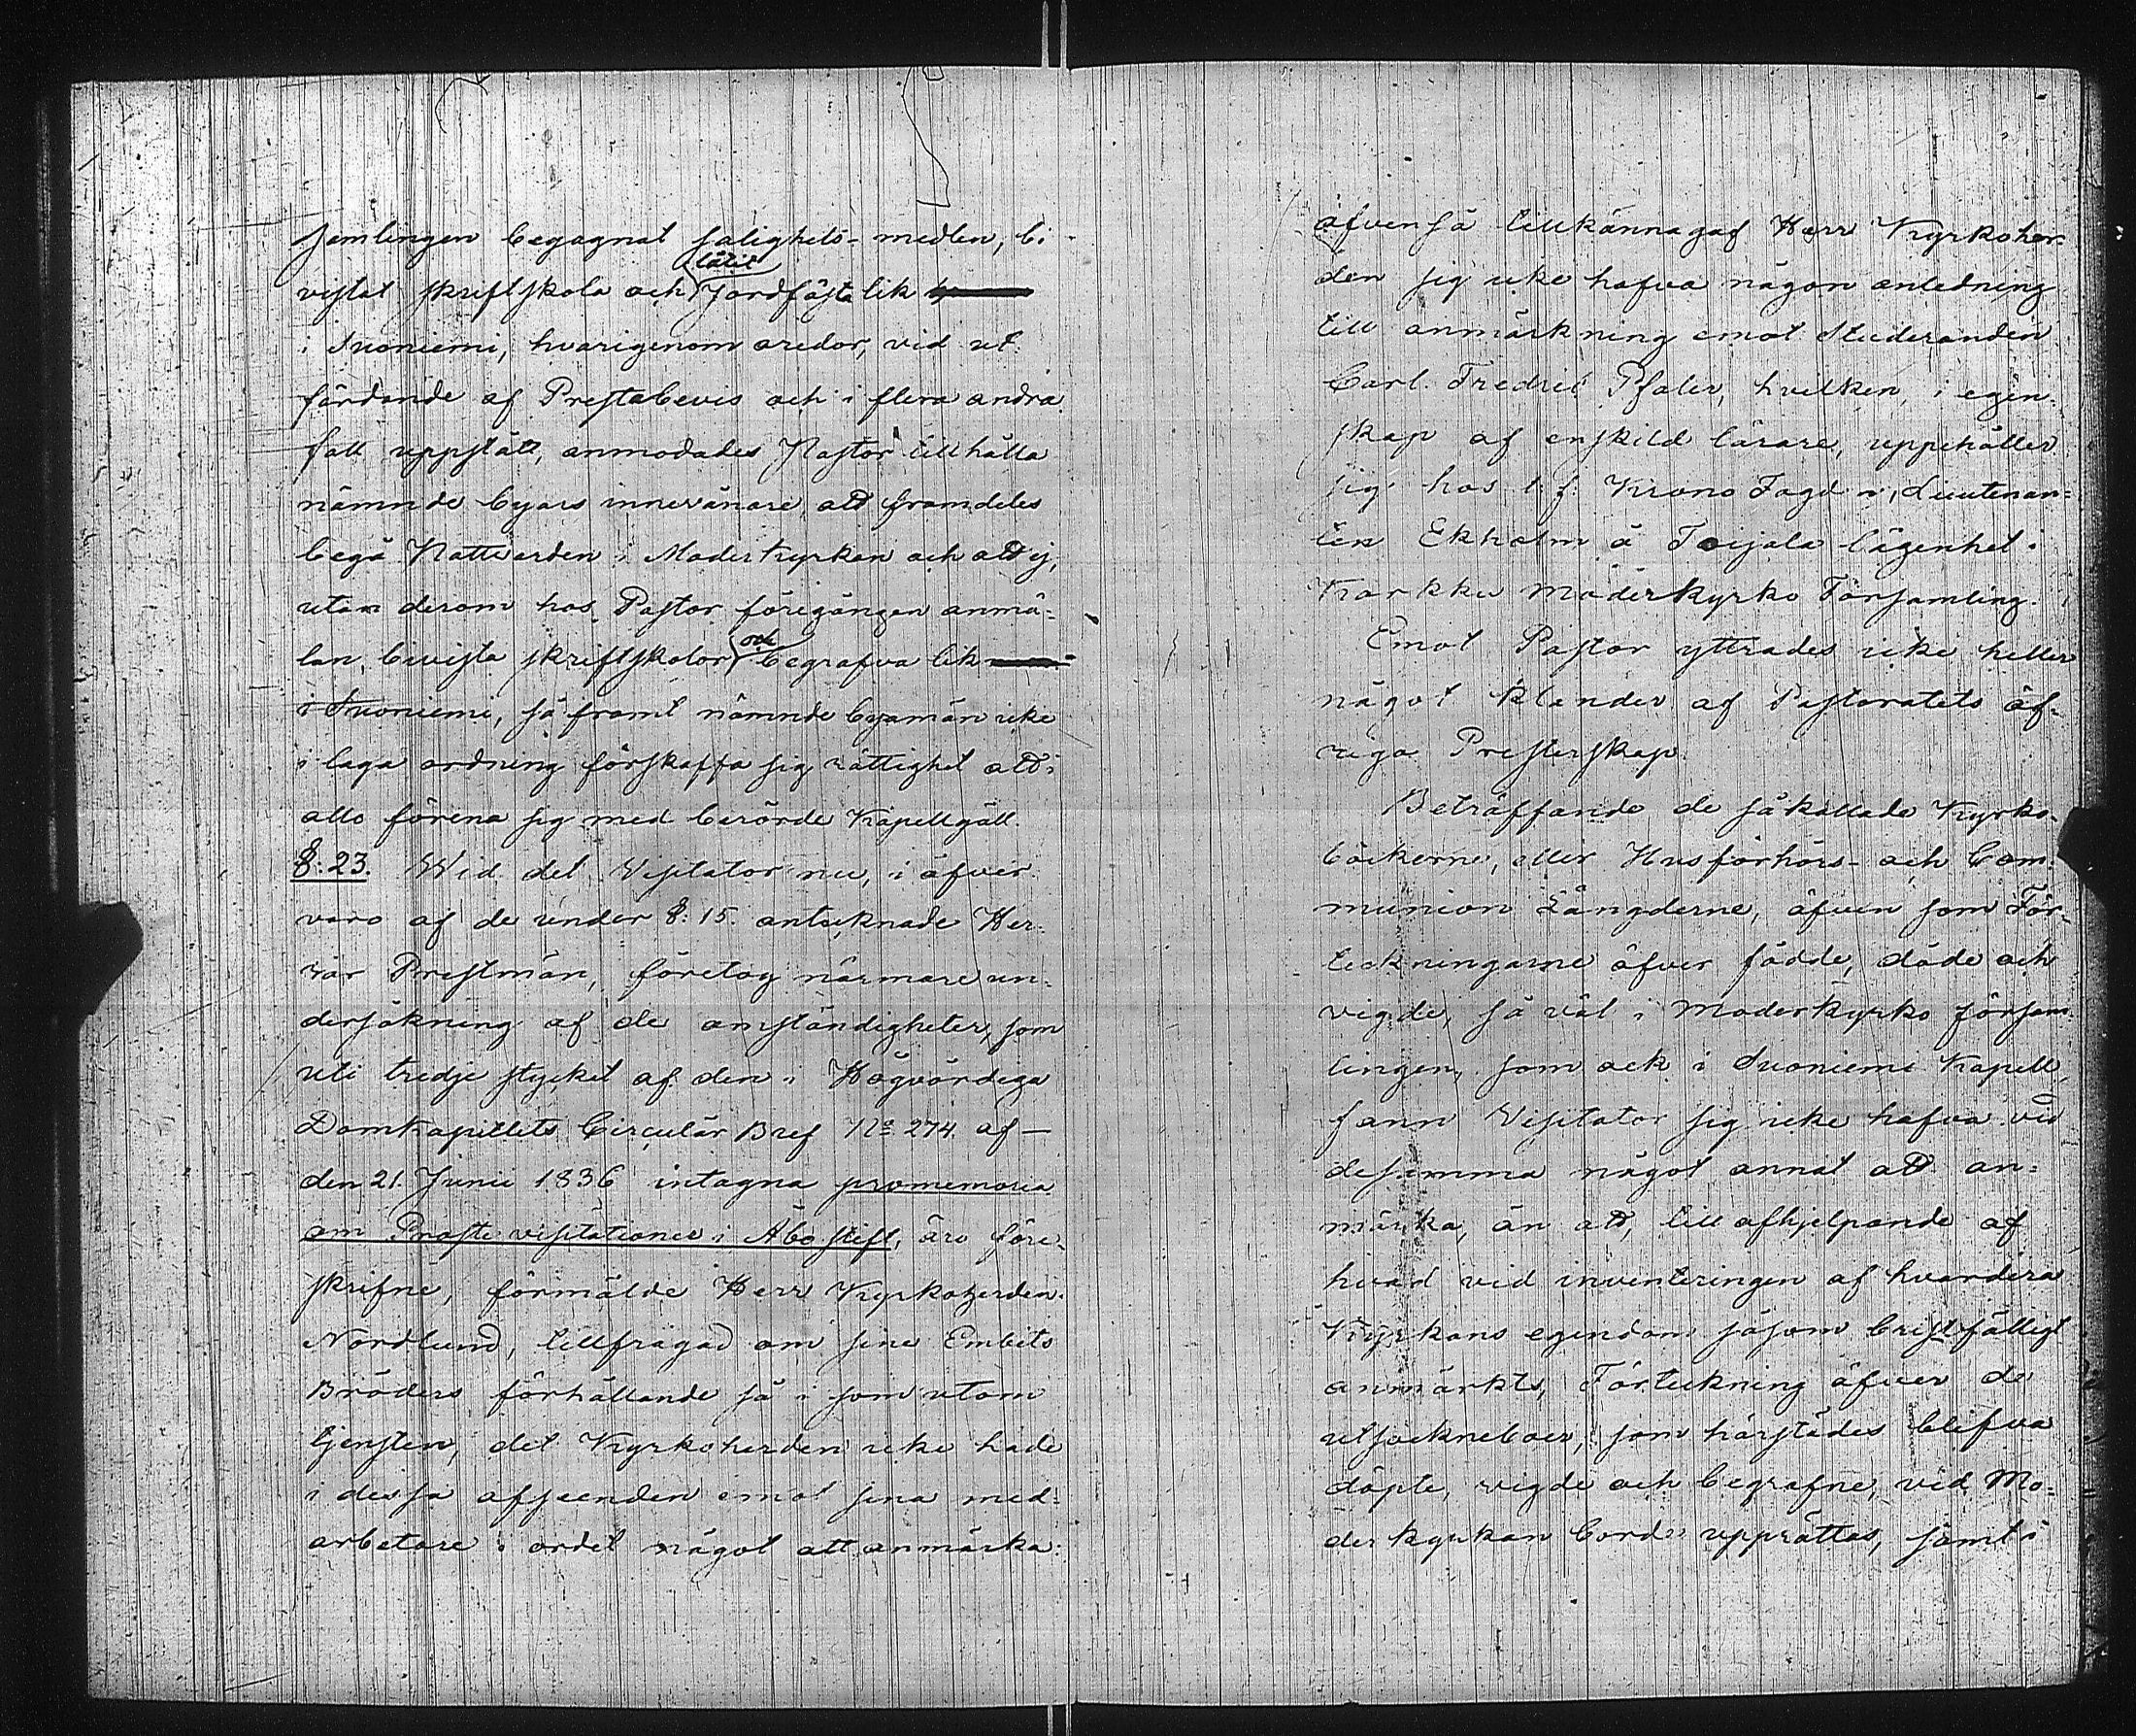 samlingen begagnat salighets-medlen, bi-
vistat skriftskola och låtit Jordfästa lik
i Suoniemi, hvarigenom oredor, vid ut-
färdande af Prestabevis och i flera andra
fall uppstått, anmodades Pastor tillhålla
nämnde byars innevånare att framdeles
begå Nattvarden i Moderkyrkan och att ej,
utan derom hos Pastor föregången anmä-
lan, bevista skriftskolor och begrafva lik
i Suoniemi, så framt nämnde byamän icke
i laga ordning förskaffa sig rättighet att i
allo förena sig med berörde Kapellgäll.
§. 23. Wid det Visitator nu, i öfver-
varo af de under §. 15. antecknade Her-
rar Prestmän, företog närmare un-
dersökning af de omständigheter, som
uti tredje stycket af den i Högvördiga
Domkapitlets Circulär Bref No 274. af —
den 21. Junii 1836 intagna promemoria
om Proste visitationer i Åbo stift, äro före-
skrifne, förmälde Herr Kyrkoherden
Nordlund, tillfrågad om sine Embets
Bröders förhållande så i som utom
tjensten, det Kyrkoherden icke hade
i dessa afseenden emot sina med-
arbetare i ordet något att anmärka:
äfvenså tillkännagaf Herr Kyrkoher-
den sig icke hafva någon anledning
till anmärkning emot Studeranden
Carl Fredric Pfaler, hvilken, i egen-
skap af enskild lärare, uppehåller
sig hos t. f. Krono Fogden, Lieutenan-
ten Ekholm å Toijala lägenhet i
Karkku moderkyrko Församling.
Emot Pastor yttrades icke heller
något klander af Pastoratets öf-
riga Presterskap.
Beträffande de såkallade Kyrko-
böckerne, eller Husförhörs- och Com-
munion Längderne, äfven som För-
teckningarne öfver födde, döde och
vigde, så väl i Moderkyrko försam-
lingen, som ock i Suoniemi Kapell,
fann Visitator sig icke hafva vid
desamma något annat att an-
märka, än att, till afhjelpande af
hvad vid inventeringen af hvardera
Kyrkans egendom såsom bristfälligt
anmärkts, Förteckning öfver de
utsockneboer, som härstädes blifva
döpte, vigde och begrafne, vid Mo-
derkyrkan borde upprättas, samt i